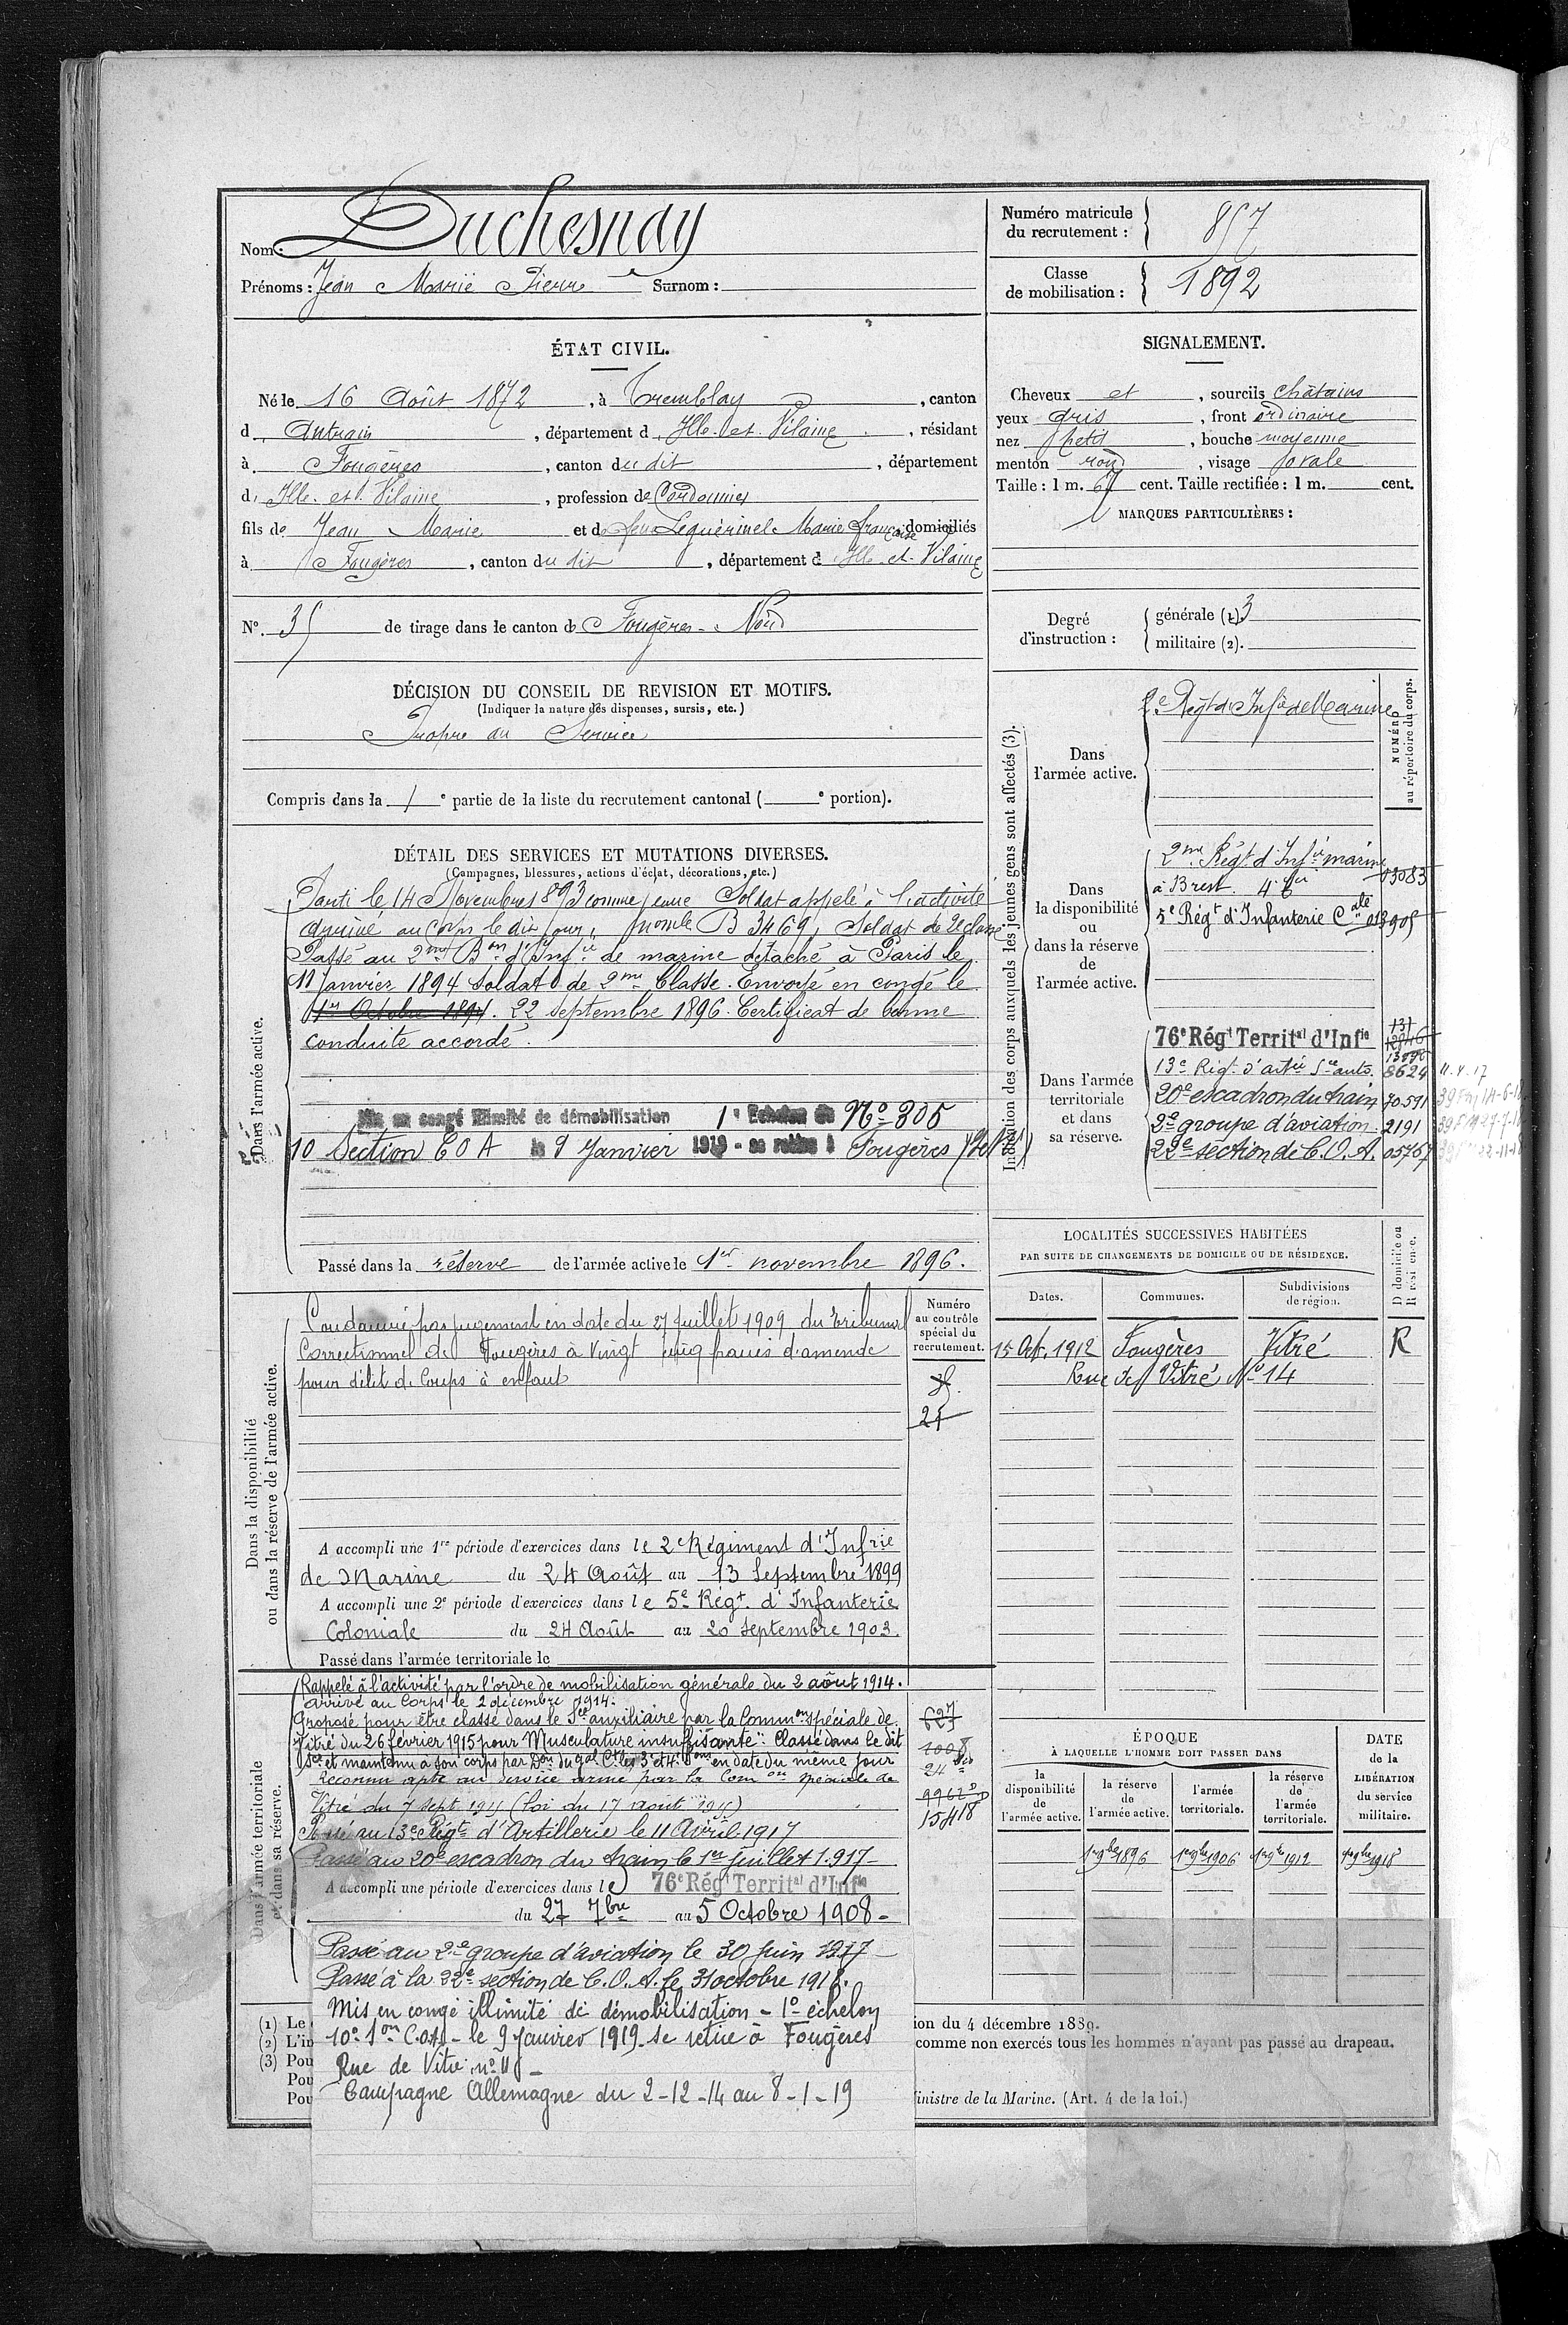 Nom : Duchesnay
Prénoms : Jean Marie Pierre Surnom :
Numéro matricule du recrutement : 857
Classe de mobilisation : 1892
ÉTAT CIVIL.
Né le 16 Août 1872, à Tremblay, canton
d Antrain, département d Ille et Vilaine, résidant
à Fougères, canton du dit, département
d Ille et Vilaine, profession de Cordonnier
fils de Jean Marie et de feue Leguérinel Marie Françoise domiciliés
à Fougères, canton du dit, département d Ille et Vilaine
N° 35 de tirage dans le canton de Fougères - Nord
SIGNALEMENT.
Cheveux et, sourcils châtains
yeux gris, front ordinaire
nez petit, bouche moyenne
menton rond, visage ovale
Taille : 1 m. 67 cent. Taille rectifiée : 1 m. cent.
MARQUES PARTICULIÈRES :
Degré d'instruction : générale (1) 3
militaire (2).
DÉCISION DU CONSEIL DE REVISION ET MOTIFS.
(Indiquer la nature des dispenses, sursis, etc.)
Propre au Service
Compris dans la 1e partie de la liste du recrutement cantonal ( e portion).
DÉTAIL DES SERVICES ET MUTATIONS DIVERSES.
(Campagnes, blessures, actions d'éclat, décorations, etc.)
Dans l'armée active.
Parti le 14 Novembre 1893 comme jeune Soldat appelé à l'activité
arrivé au Corps le dit jour, Nomle B 3469, Soldat de 2e classe
Passé au 2me Bon d'Infie de marine détaché à Paris le
11 Janvier 1894 Soldat de 2me Classe. Envoyé en congé le
1er Octobre 1894. 22 septembre 1896. Certificat de bonne
conduite accordé.
Mis en congé illimité de démobilisation 1er Echelon du No 305
10 Section C O A le 9 Janvier 1919 - se retire à Fougères
Passé dans la réserve de l'armée active le 1er novembre 1896.
Indication des corps auxquels les jeunes gens sont affectés (3).
NUMÉRO au répertoire du corps.
Dans l'armée active.
2e Régt d'Infie de Marine
Dans la disponibilité ou dans la réserve de l'armée active.
2me Régt d'Infie marine
à Brest. 03083
5e Régt d'Infanterie Cale 013905
Dans l'armée territoriale et dans sa réserve.
76e Régt Territal d'Infie 131
13e Régt d'artie Sce auto. 8624 11.4.17
20e escadron du train 70591
2e groupe d'aviation 2191
22e section de C.O.A. 05767
LOCALITÉS SUCCESSIVES HABITÉES
PAR SUITE DE CHANGEMENTS DE DOMICILE OU DE RÉSIDENCE.
Dates. Communes. Subdivisions de région. Domicile ou Résidence.
15 Oct. 1912 Fougères Vitré R
Rue de Vitré No 14
Dans la disponibilité ou dans la réserve de l'armée active.
Numéro au contrôle spécial du recrutement.
Condamné par jugement en date du 27 juillet 1909 du Tribunal
Correctionnel de Fougères à Vingt cinq francs d'amende
pour délit de Coups à enfant
A accompli une 1re période d'exercices dans le 2e Régiment d'Infrie
de Marine du 24 Août au 13 Septembre 1899
A accompli une 2e période d'exercices dans le 5e Régt. d'Infanterie
Coloniale du 24 Août au 20 Septembre 1903.
Passé dans l'armée territoriale le
Dans l'armée territoriale et dans sa réserve.
Rappelé à l'activité par l'ordre de mobilisation générale du 2 août 1914.
arrivé au Corps le 2 décembre 1914.
Proposé pour être classé dans le Sce auxiliaire par la Common spéciale de 627
Vitré du 26 février 1915 pour "Musculature insuffisante". Classé dans le dit 1008
Sce et maintenu à son corps par Don du Gal Ct les 3e et 4e Sons en date du même jour
Reconnu apte au service armé par la Comon spéciale de 9962
Vitré du 7 Sept. 1915 (loi du 17 août 1915) 15418
Passé au 13e Régt d'Artillerie le 11 Avril 1917
Passé au 20e escadron du train le 1er juillet 1917
A accompli une période d'exercices dans le 76e Régt Territal d'Infie
du 27 7bre au 5 Octobre 1908 -
Passé au 2e groupe d'aviation le 30 Juin 1917
Passé à la 22e section de C.O.A. le 31 octobre 1918.
Mis en congé illimité de démobilisation - 1o échelon
10e Son C.O.A. - le 9 Janvier 1919 se retire à Fougères
Rue de Vitré
Campagne Allemagne du 2-12-14 au 8-1-19
ÉPOQUE
À LAQUELLE L'HOMME DOIT PASSER DANS
la disponibilité de l'armée active. la réserve de l'armée active. l'armée territoriale. la réserve de l'armée territoriale.
DATE de la LIBÉRATION du service militaire.
1er 9bre 1896 1er 9bre 1906 1er 9bre 1912 1er 9bre 1918
(1) Le
(2) L'in
(3) Pou
Pou
Pou
ion du 4 décembre 1889.
comme non exercés tous les hommes n'ayant pas passé au drapeau.
inistre de la Marine. (Art. 4 de la loi.)